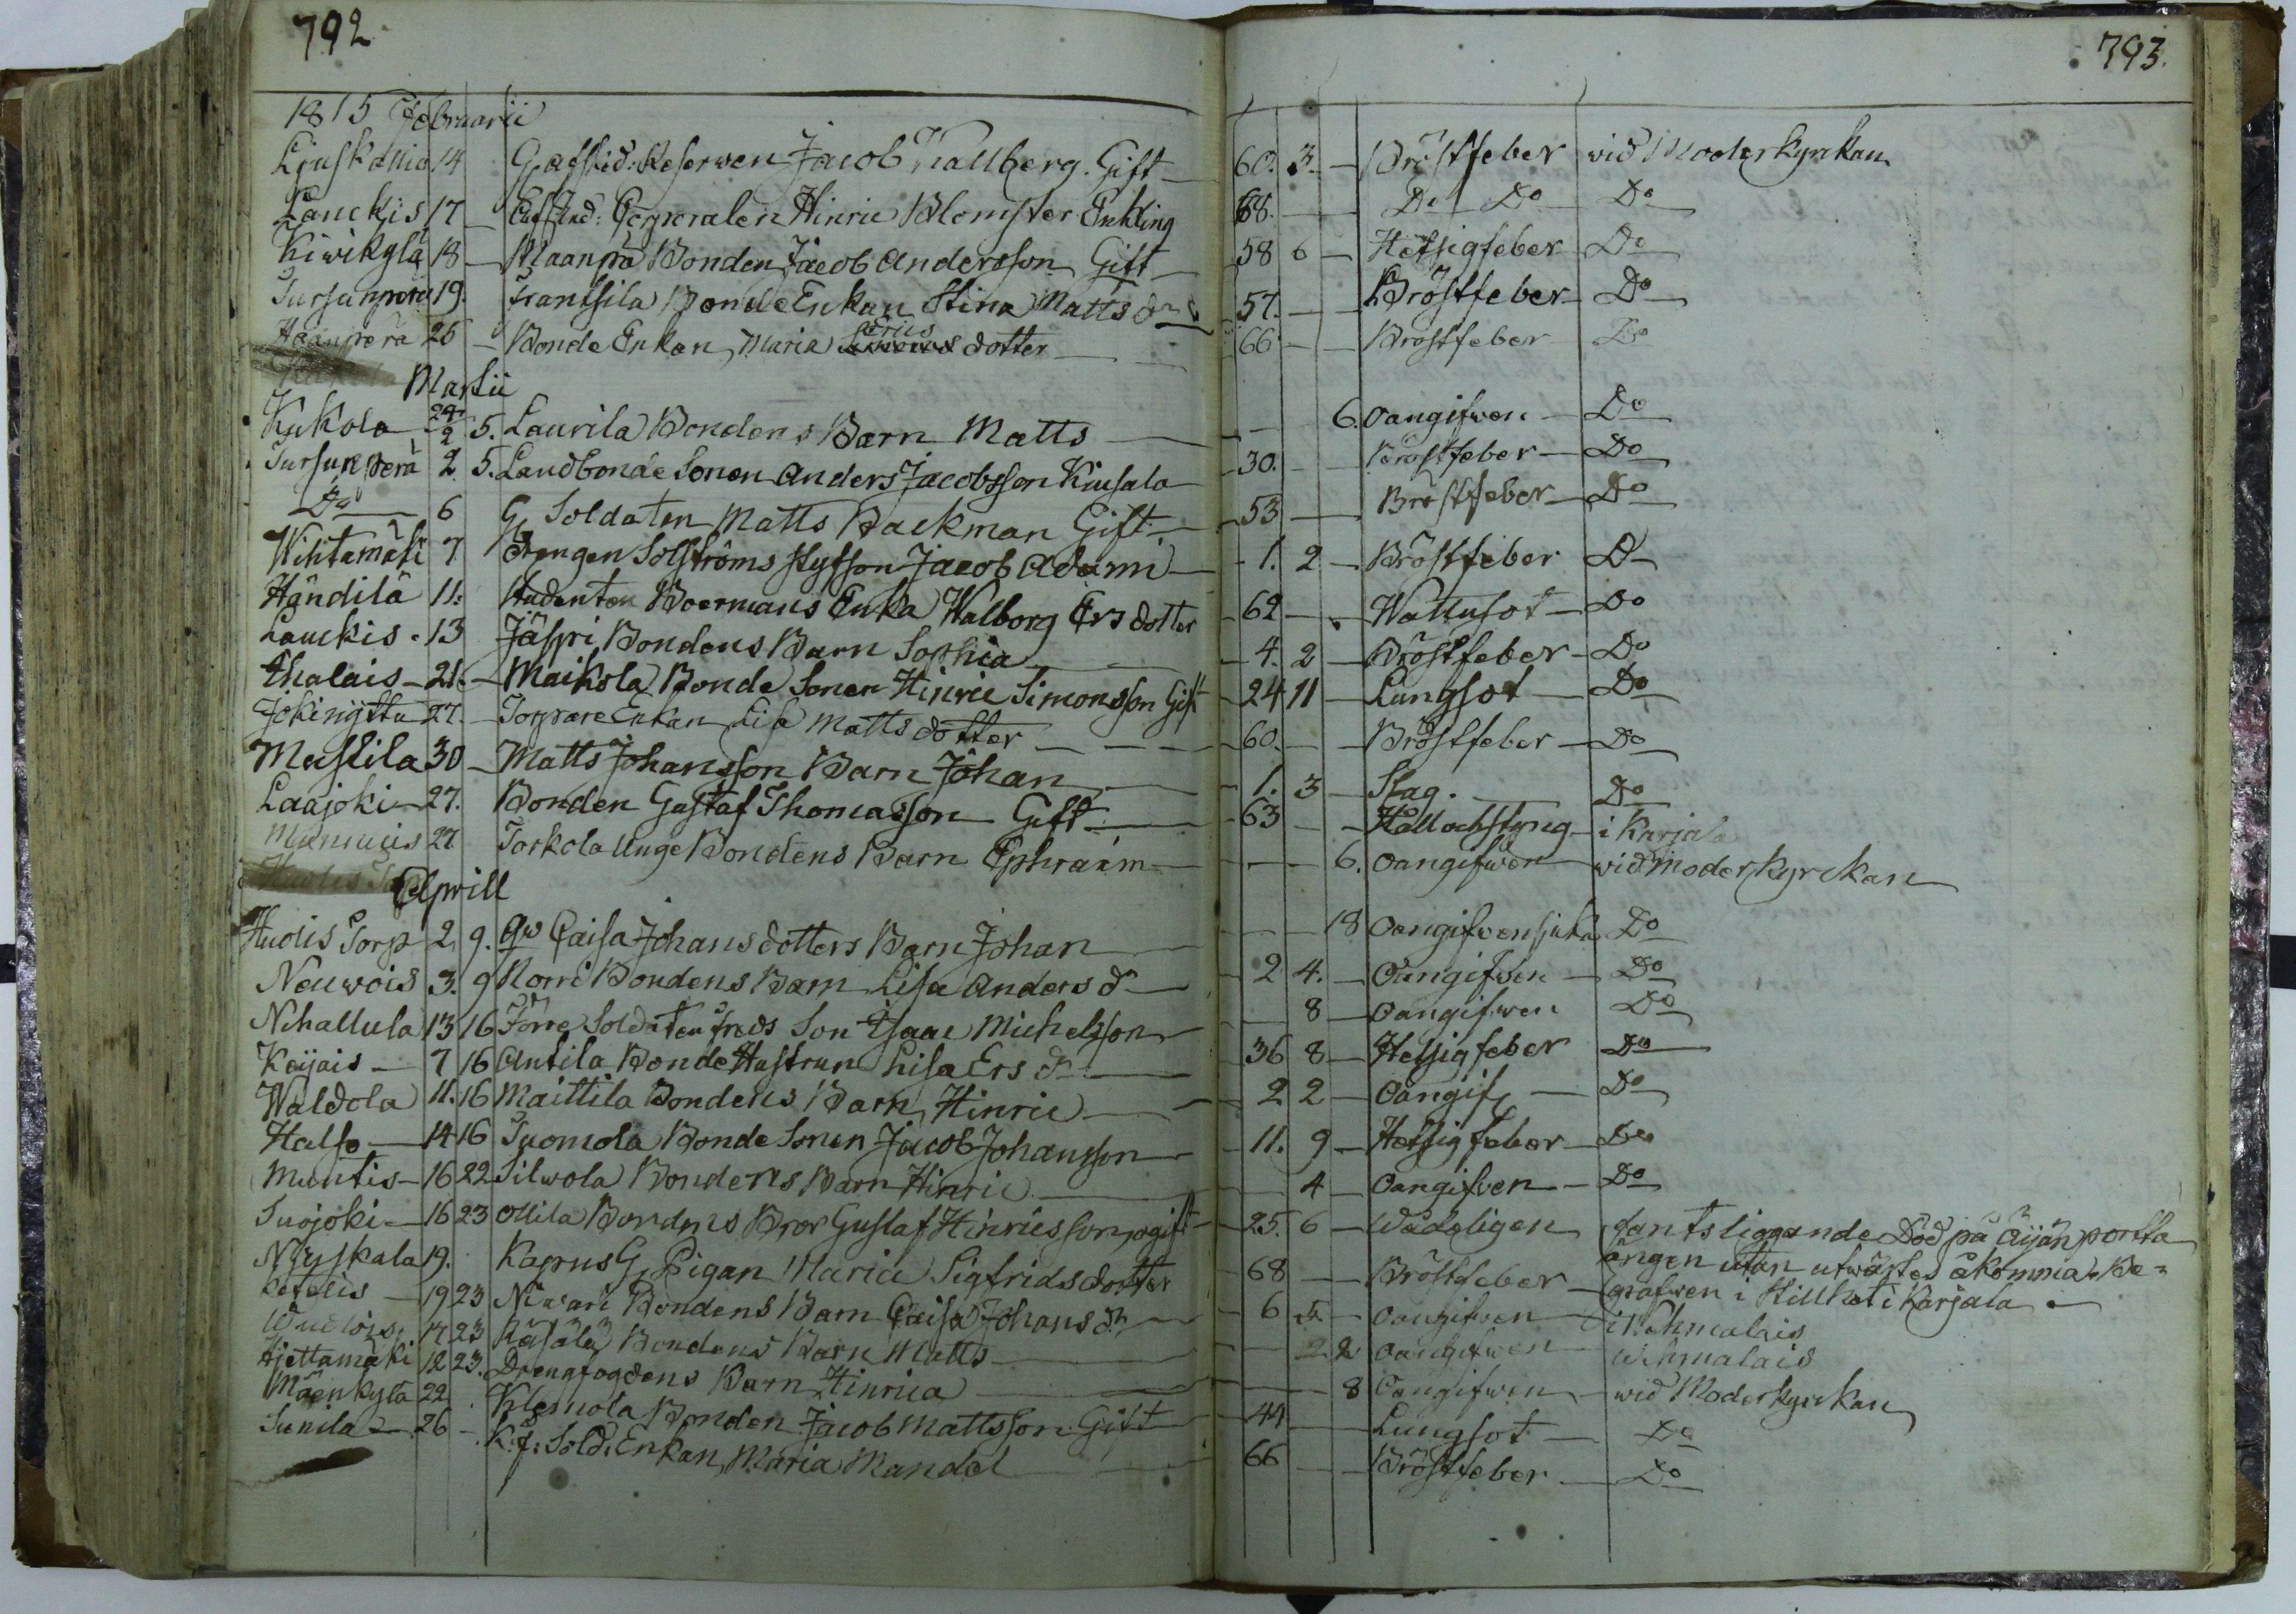 792
793.
1815 Februarii
14 G. afskid: Reserven Jacob Kallberg. Gift 60. 3. Bröstfeber wid Moderkyrkan
Lauckis 17 Corporalen Hinric Blomster Enkling 68. Do Do Do
Kiwikylä 18 Maanpä Bonden Jacob Andersson Gift 58 6 Hetsigfeber Do
Tursunperä 19. Frantsila Bonde Enkan Stina Matts dr 57. Bröstfeber Do
Haanperä 26 Bonde Enkan Maria Erics dotter 66 Bröstfeber Do
Martii
Kukola 24/2 5. Laurila Bondens Barn Matts 6. Oangifwen Do
Tursunperä 2 5. Landbonde Sonen Anders Jacobsson Kiusala 30. Bröstfeber Do
Do 6 G. Soldaten Matts Backman Gift 53 Bröstfeber Do
Wihtamäki 7 Drengen Solströms Styfson Jacob Adami 1. 2 Bröstfeber Do
Händilä 11. Studenten Boermans Enka Walborg Ers dotter 62 Wattusot Do
Lauckis 13 Jäspri Bondens Barn Sophia 4. 2 Bröstfeber Do
Ihalais 21. Maikola Bonde Sonen Hinric Simonsson Gift 24 11 Lungsot Do
27. Torpare Enkan Lisa Matts dotter 60. Bröstfeber Do
Mustila 30 Matts Johansson Barn Johan 1. 3 Slag. Do
Laajoki 27. Bonden Gustaf Thomasson Gift 63 Håll och styng i Karjala
27 Torkola Unge Bondens Barn Ephraim 6. Oangifwen wid Moderkyrckan
Aprill
Huolis Torp 2 9. Caisa Johans dotters Barn Johan 18 Oangifwen sjuka Do
Neuwois 3. 9 Norri Bondens Barn Lisa Anders dr 2 4. Oangifwen Do
Nihattula 13 16 Förre Soldaten Freds Son Isaac Michelsson 8 Oangifwen Do
Keijais 7 16 Antila Bonde Hustrun Lisa Ers dr 36 8 Hetsigfeber Do
Waldola 11. 16 Maittila Bondens Barn Hinric 2 2 Oangif Do
Halso 14 16 Tuomola Bonde Sonen Jacob Johansson 11. 9 Hetsigfeber Do
Muntis 16 22 Silwola Bondens Barn Hinric 4 Oangifven Do
Suojoki 16 23 Ollila Bondens Bror Gustaf Hinricsson, ogift 25. 6 Wådeligen fants liggande Död på Äijänportta
ängen utan utwärtes åkomma. Be-
grafwen i stillhet i Karjala
Nyykala 19. Kapus G. Pigan Maria Sigfrids dotter 68 Bröstfeber
Ketelis 19 23 Niwari Bondens Barn Caisa Johans dr 6 5. Oangifven
17 23 Käsälä Bondens Barn Matts 2 2 Oangifwen wehmalais
Hjettamäki 12 23. Drengfogdens Barn Hinrica 8 Oangifwen wid Moderkyrckan
Mäenkylä 22 Klemola Bonden Jacob Mattsson Gift 44 Lungsot Do
Sunila 26 K: f: Sold: Enkan Maria Mandel 66 Bröstfeber Do